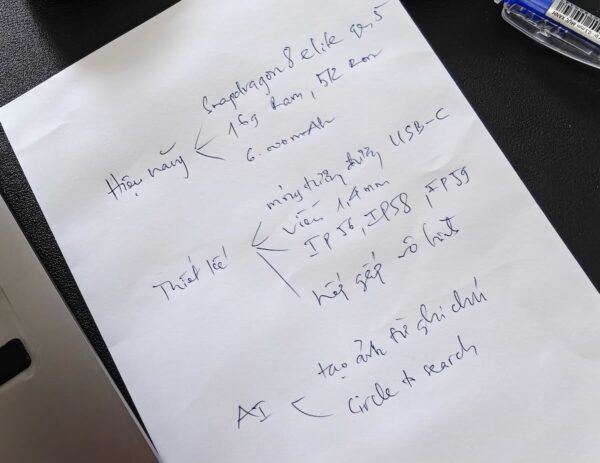 Hiệu năng
Snapdragon 8 elite gen 5
16g Ram, 512 Rom
6.000mAh
Thiết kế
mỏng tương đương USB-C
viền 1,4mm
IP56, IP58, IP59
nếp gấp vô hình
AI
tạo ảnh từ ghi chú
Circle to search